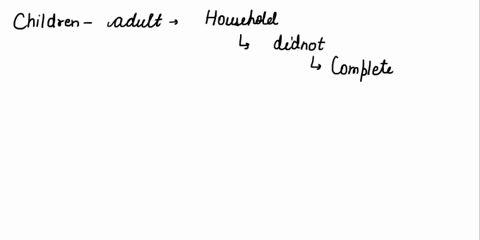 Children - adult → Household
↳ didnot
↳ Complete